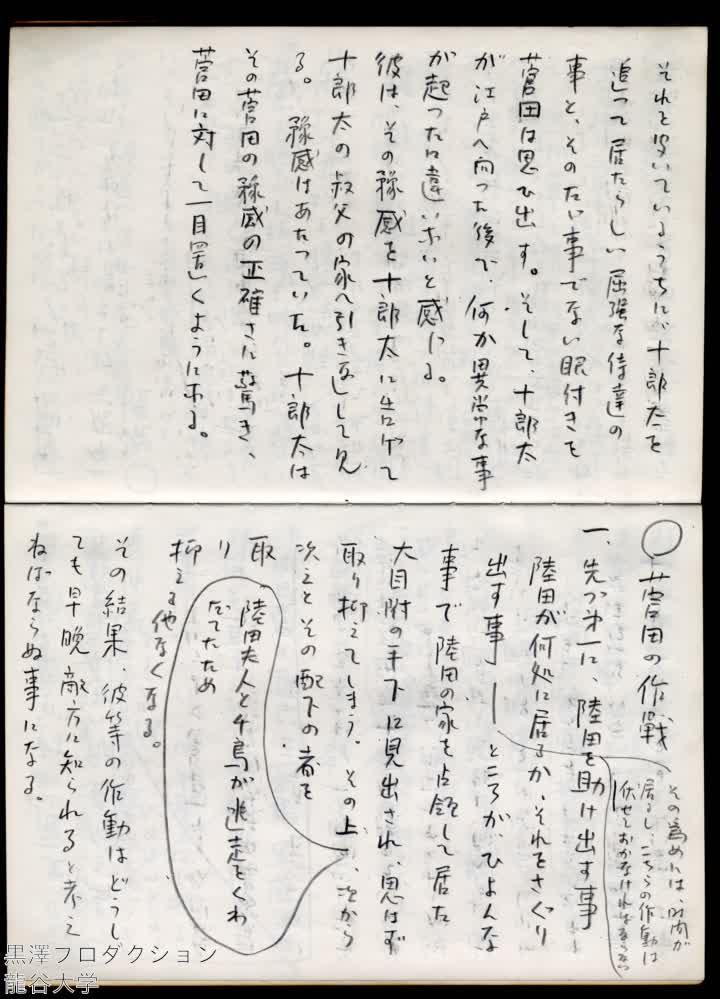 それを聞いているうちに、十郎太を
追って居たらしい屈強な侍達の
事と、そのたゞ事でない眼付きを
菅田は思ひ出す。そして、十郎太
が江戸へ向った後で、何か異常な事
が起ったに違いないと感じる。
彼は、その豫感を十郎太に告げて
十郎太の叔父の家へ引き返して見
る。豫感はあたっていた。十郎太は
その菅田の豫感の正確さに驚き、
菅田に対して一目置くようになる。
○菅田の作戰
一、先づ第一に、陸田を助け出す事
陸田が何処に居るか、それをさぐり
出す事——ところが、ひょんな
事で陸田の家を占領して居た
大目附の手下に見出され、思はず
取り抑えてしまう。その上、次から
次えとその配下の者を
取り
抑える他なくなる。
陸田夫人と千鳥が逃走をくわ
だてたため
その結果、彼等の作動はどうし
ても早晩敵方に知られると考え
ねばならぬ事になる。
その為めには、時間が
居るし、こちらの作動は
伏せておかなければならない
黒澤プロダクション
龍谷大学